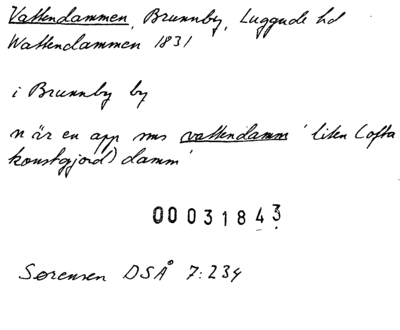 Vattendammen, Brunnby, Luggude hd
Wattendammen 1831
i Brunnby by
n är en app sms vattendamm 'liten (ofta
konstgjord) damm'
00031843
Sørensen DSÅ 7:234